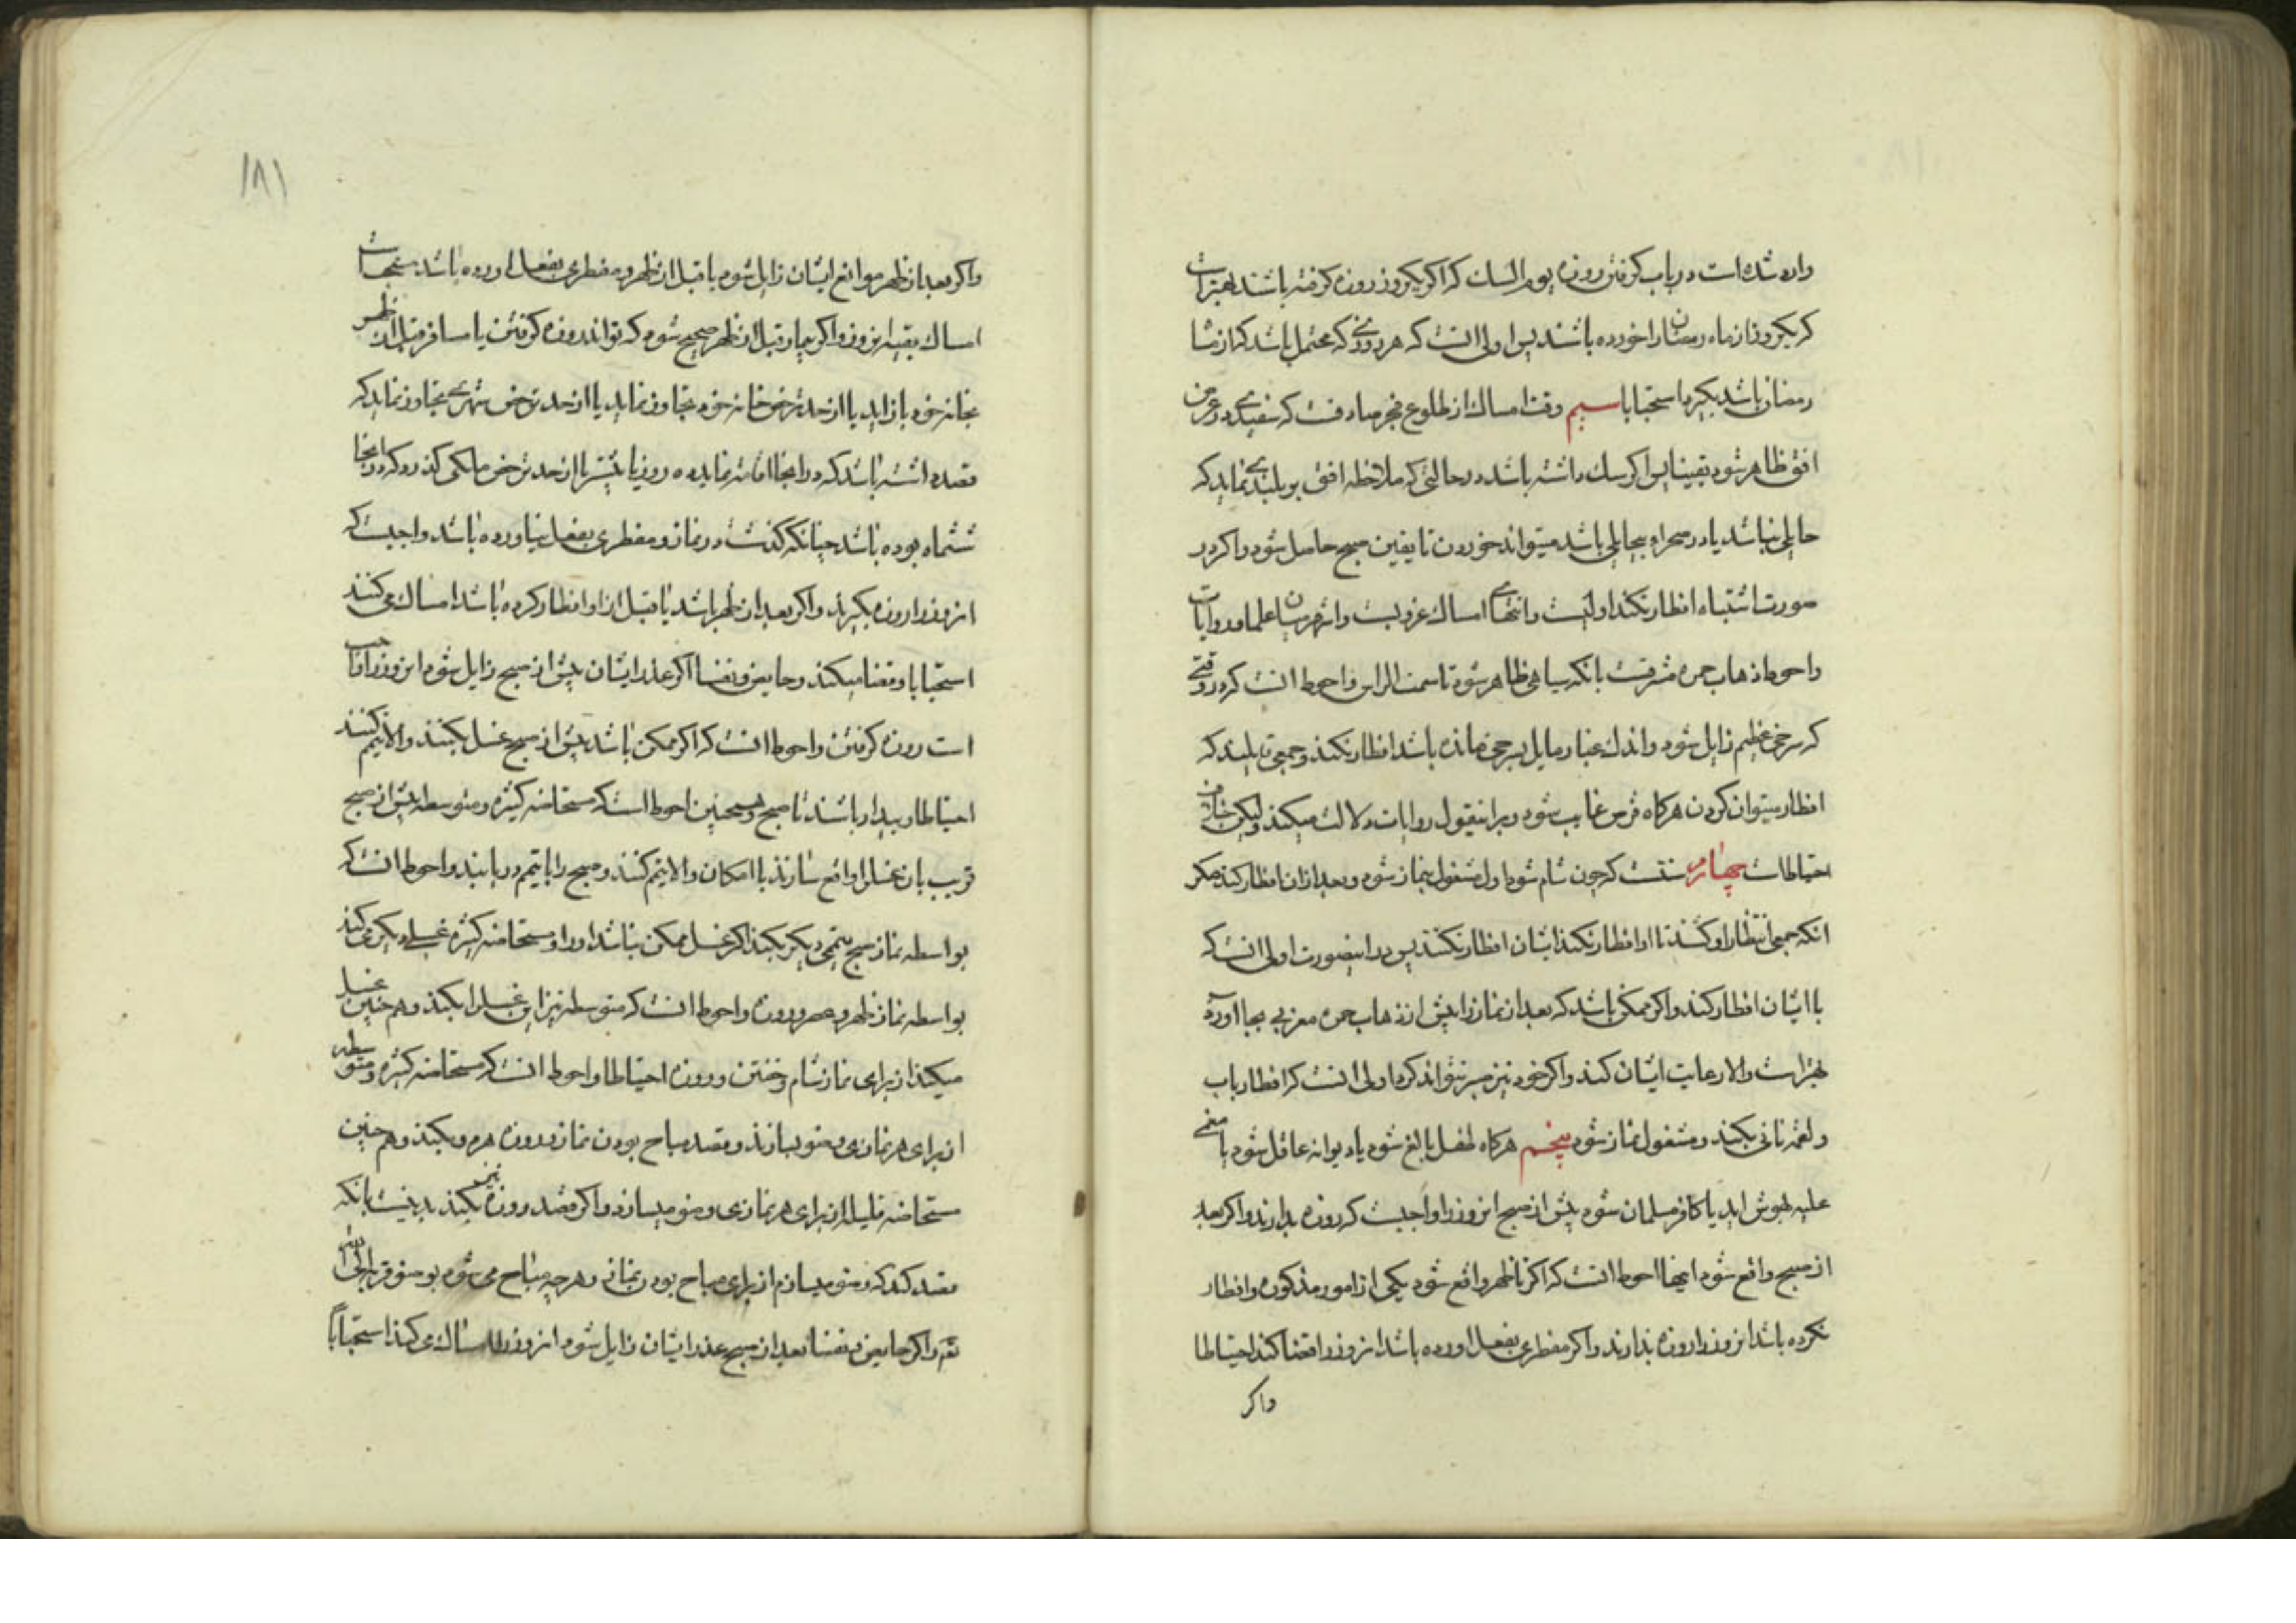 وارد شده است در باب کرفتن روزه یوم الشک که اکر یکروز روزه کرفته باشند بهتر است
که یکروز از ماه رمضان را خورده باشند پس اولی انست که هر روزی که محتمل باشد که از ماه
رمضان باشد بکیرد استحبابا سیم وقت امساک از طلوع فجر صادقست که سفیدی در عرض
افق ظاهر شود یقینا پس اکر شک داشته باشد در حالتی که ملاحظه افق بر بلندی نماید که
حایلی نباشد یا در صحراء بیحایلی باشد میتواند خوردن تا یقین صبح حاصل شود و اکر در
صورت اشتباه افطار نکند اولیست و انتهای امساک غروبست و اشهر میان علما و روایات
و احوط ذهاب حمره مشرقست بانکه سیاهی ظاهر شود تا سمت الراس و احوط انست که در وقتی
که سرخی عظیم زایل شود و اندک غبار مایل بسرخی مانده باشد افطار نکند و جمعی قایلند که
افطار میتوان کردن هرکاه قرص غایب شود و براینقول روایات دلالت میکند ولیکن خلاف
احتیاطست چهارم سنتست که چون شام شود اول مشغول بنماز شود و بعد ازان افطار کند مکر
انکه جمعی انتظار او کشند تا او افطار نکند ایشان افطار نکنند پس در اینصورت اولی انست که
با ایشان افطار کند و اکر ممکن باشد که بعد از نماز را پیش از ذهاب حمره مغربی بجا آورد
بهتر است و الا رعایت ایشان کند و اکر خود نیز صبر نتواند کرد اولی انست که افطار باب
و لقمه نانی بکند و مشغول نماز شود پنجم هرکاه طفل بالغ شود یا دیوانه عاقل شود یا مغمی
علیه بهوش اید یا کافر مسلمان شود پیش از صبح انروز را واجبست که روزه بدارند و اکر بعد
از صبح واقع شود اینها احوط انست که اکر تا ظهر واقع شود یکی از امور مذکوره و افطار
نکرده باشد انروز را روزه بدارند و اکر مفطری بفعل اورده باشد انروز را قضا کند احتیاطا
واکر
۱۸۱
واکر بعد از ظهر موانع ایشان زایل شود یا قبل از ظهر و مفطری بفعل اورده باشد مستحبست
امساک بقیه انروز و اکر بیمار قبل از ظهر صحیح شود که تواند روزه کرفتن یا مسافر قبل از ظهر
بخانه خود باز اید یا از حد ترخص خانه خود تجاوز نماید یا از حد ترخص شهری تجاوز نماید که
قصد داشته باشد که در انجا اقامه نماید ده روز یا بیشتر یا از حد ترخص ملکی کذرد که در انجا
ششماه بوده باشد چنانکه کذشت در نماز و مفطری بفعل نیاورده باشد واجبست که
انروز را روزه بکیرند و اکر بعد از ظهر باشد یا قبل ازاو افطار کرده باشد امساک می کنند
استحبابا و قضا میکنند و حایض و نفسا اکر عذر ایشان پیش از صبح زایل شود انروز را واجب
است روزه کرفتن و احوط انست که اکر ممکن باشد پیش از صبح غسل بکنند و الا تیمم کنند
احتیاطا و بیدار باشند تا صبح و همچنین احوط انست که مستحاضه کثیره و متوسطه پیش از صبح
قریب بان غسل را واقع سازند با امکان و الا تیمم کنند و صبح را با تیمم دریابند و احوط انست که
بواسطه نماز صبح تیممی دیکر بکند اکر غسل ممکن نباشد او را و مستحاضه کثیره غسلی دیکر می کند
بواسطه نماز ظهر و عصر و روزه و احوط انست که متوسطه نیز این غسل را بکند و هم چنین غسل
میکند از برای نماز شام و خفتن و روزه احتیاطا و احوط انست که مستحاضه کثیره و متوسطه
از برای هر نمازی وضو بسازند و قصد مباح بودن نماز و روزه هر دو بکنند و هم چنین
مستحاضه قلیله از برای هر نمازی وضو میسازد و اکر قصد روزه نیز بکند بد نیست بانکه
قصد کند که وضو میسازم از برای مباح بودن نماز و هر چه مباح می شود بوضو قربة الی الله
و اکر حایض و نفسا بعد از صبح عذر ایشان زایل شود انروز را امساک می کنند استحبابا